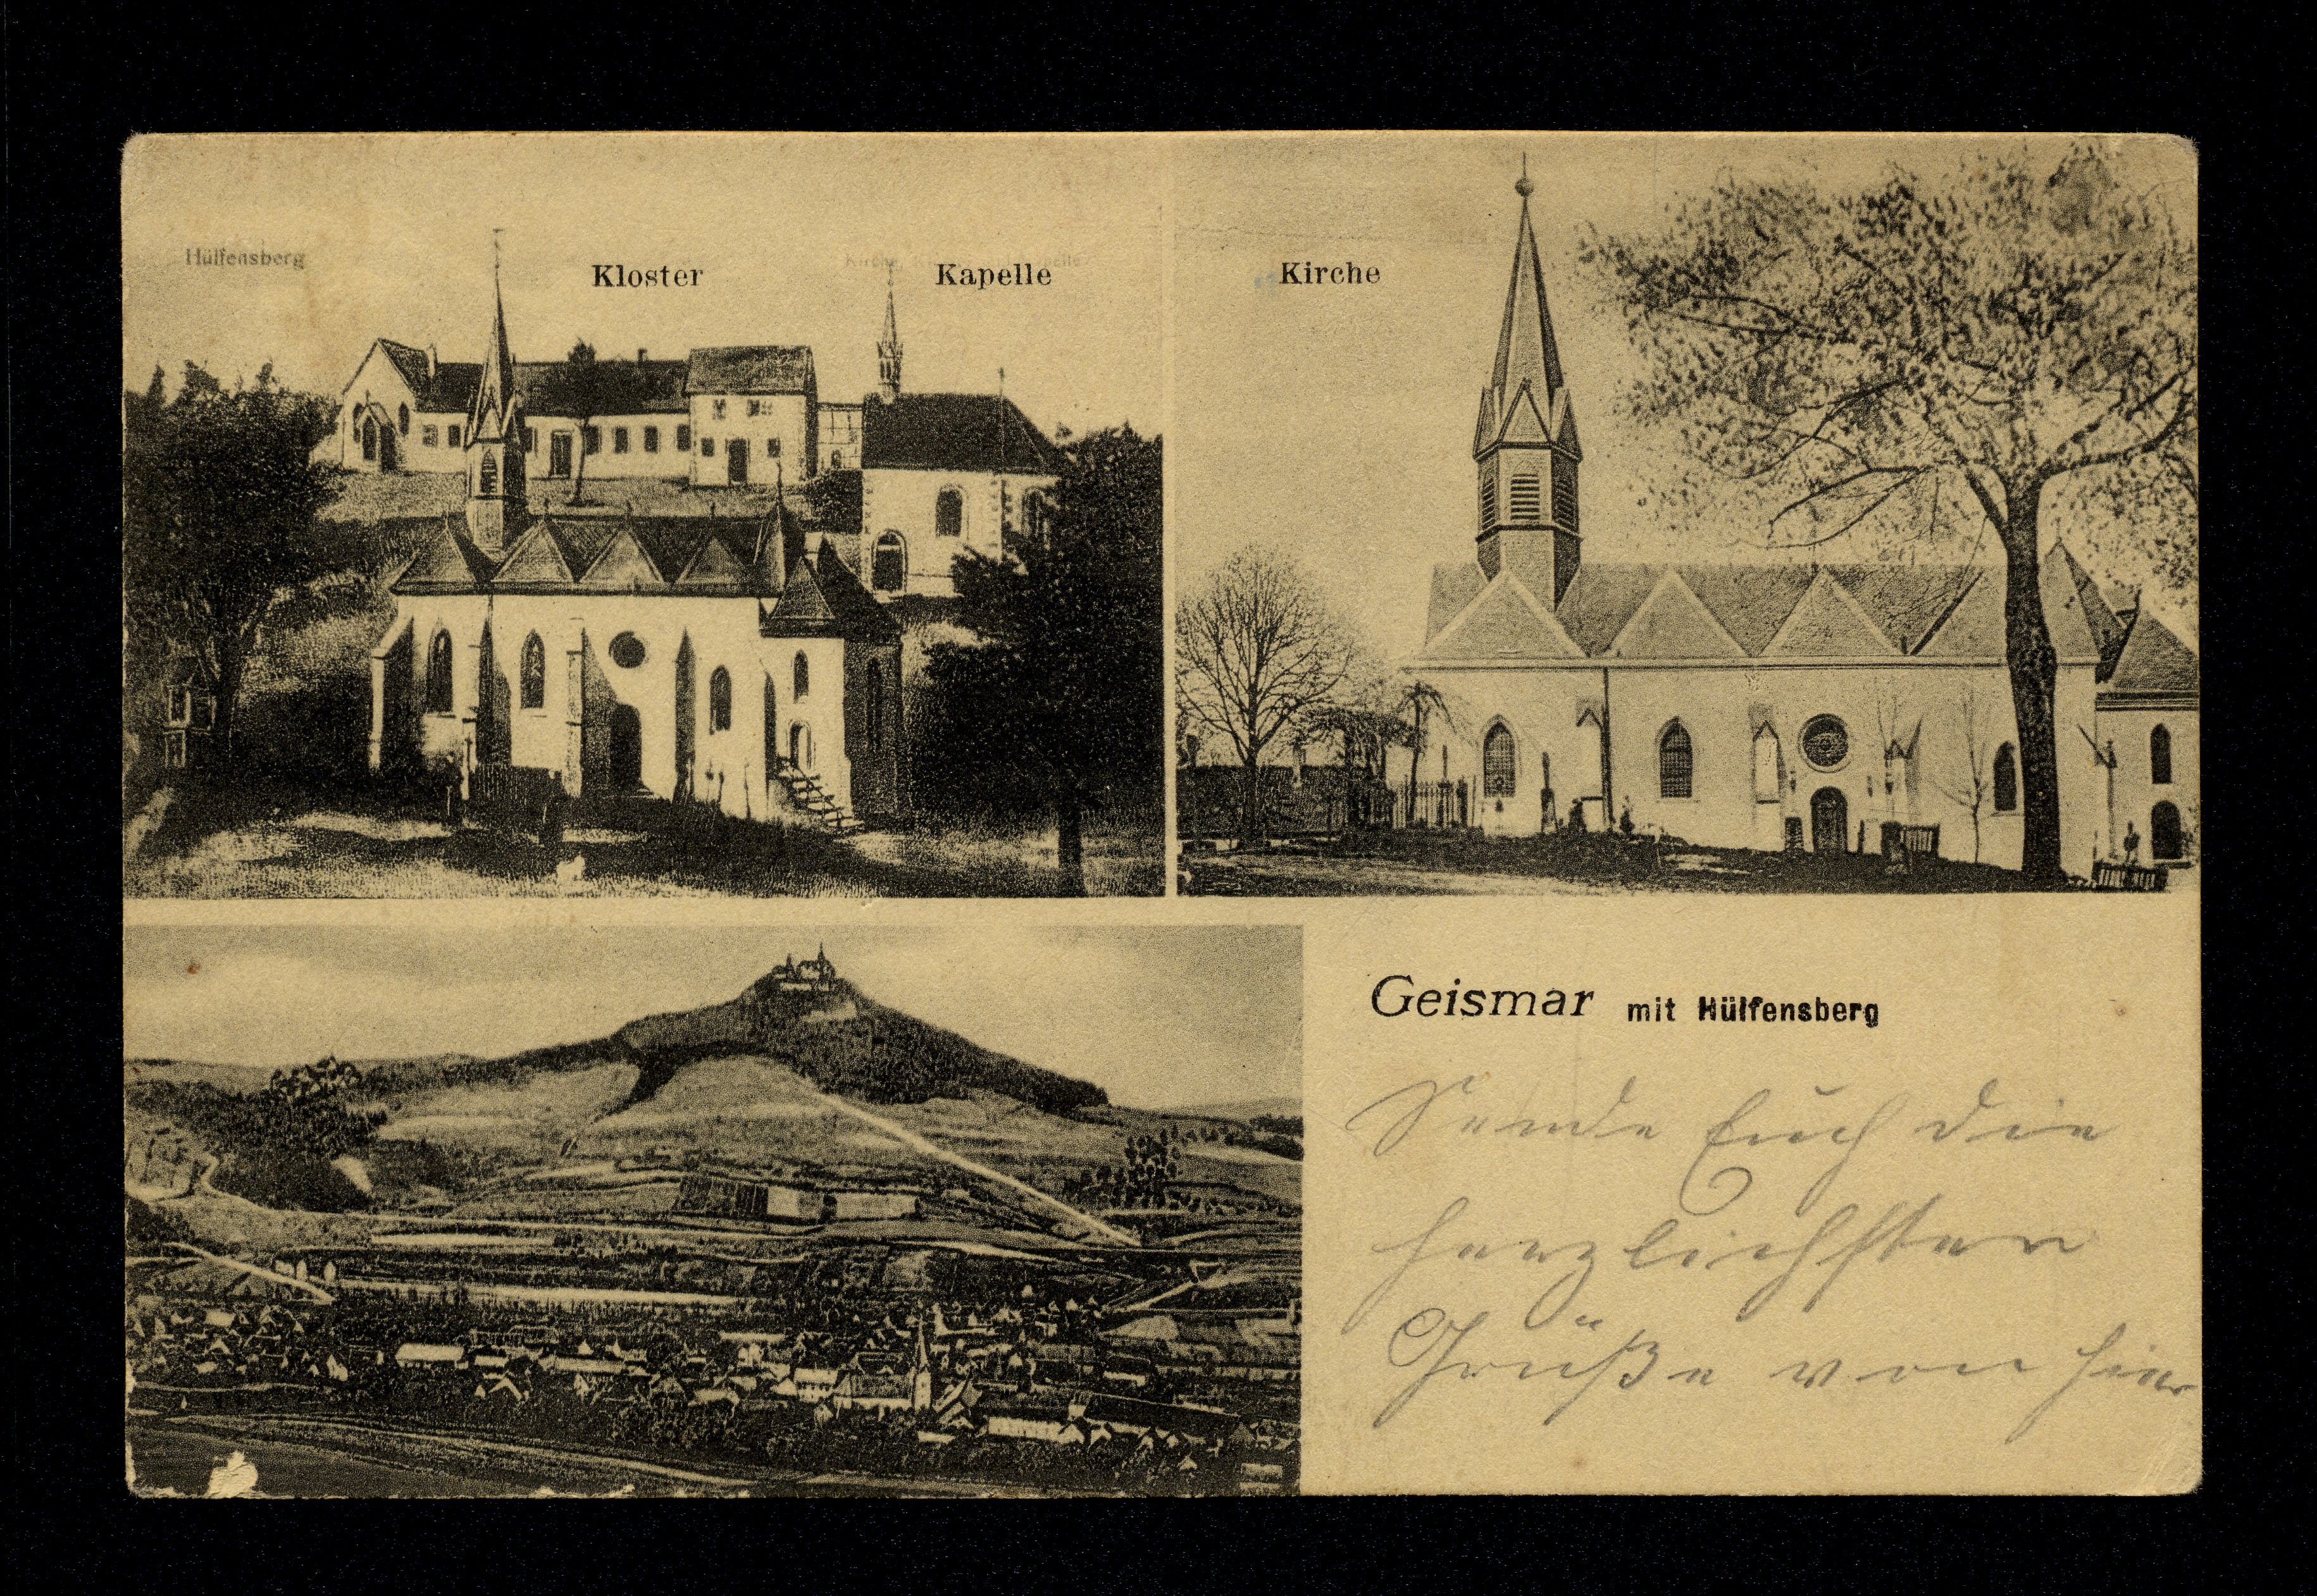 Hülfensberg
Kloster
Kapelle
Kirche
Geismar mit Hülfensberg
Sende Euch die
herzlichsten
Grüße von hier